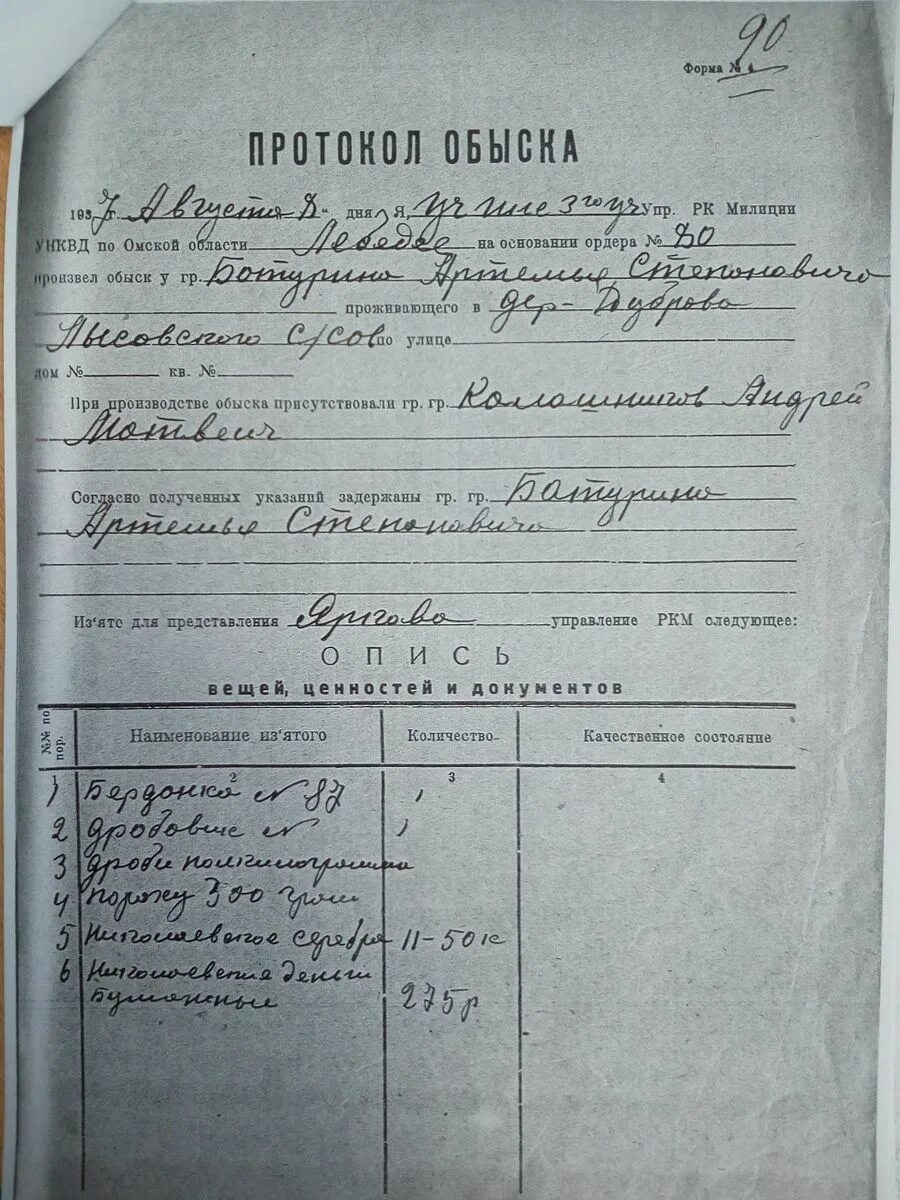 90
Форма № 4
ПРОТОКОЛ ОБЫСКА
1937г. Августа 8 дня Я, Упр. РК Милиции
УНКВД по Омской области на основании ордера № 80
произвел обыск у гр. Батурина Артемья Степановича
проживающего в дер- Дуброва
Лысовского с/сов по улице
дом № кв. №
При производстве обыска присутствовали гр. гр. Андрей
Матвеич
Согласно полученных указаний задержаны гр. гр. Батурина
Артемья Степановича
Из'ято для представления управление РКМ следующее:
ОПИСЬ
ВЕЩЕЙ, ЦЕННОСТЕЙ И ДОКУМЕНТОВ
№№ по пор. Наименование из'ятого Количество Качественное состояние
1 2 3 4
1 Берданка №
2 дробовик № 1
3 дроби полкилограмма
4 пороху 300 грам
5 Николаевское серебра 11-50к
6 Николаевские деньги
Бумажные 275р